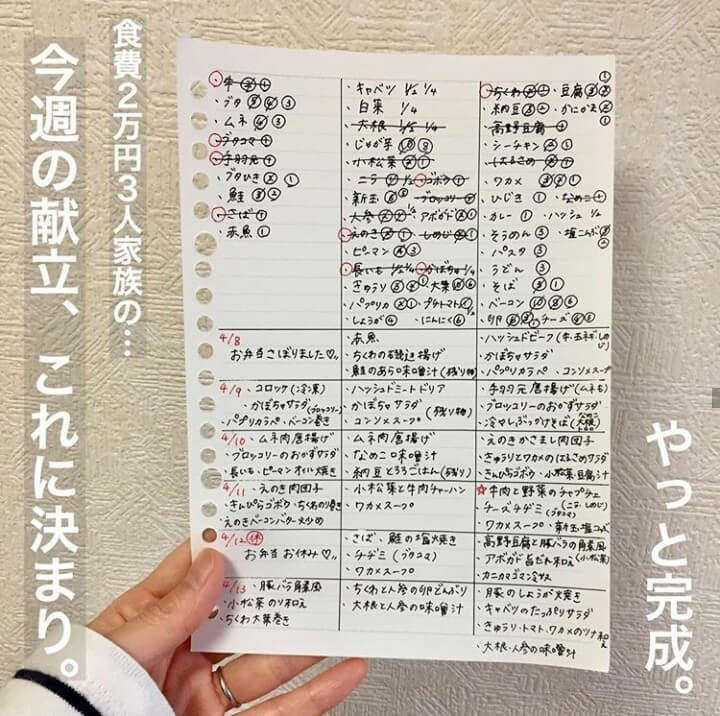 食費2万円3人家族の…
今週の献立、これに決まり。
やっと完成。
・ブタ ④ ③
・ムネ ④ ③
・ブタコマ
・手羽元
・ブタひき ①
・鮭
・さば
・赤魚 ①
・キャベツ 1/2 1/4
・白菜 1/4
・大根 1/5 1/4
・じゃが芋 ⑩ ⑧
・小松菜
・ニラ ・ゴボウ
・新玉 ・ブロッコリー
・人参 ・アボガド
・えのき ・しめじ
・ピーマン ④ ③
・長いも 1/2 1/4 ・かぼちゃ 1/4
・きゅうり ・大葉
・パプリカ ・プチトマト
・しょうが ④ ・にんにく ⑥
・ちくわ ・豆腐
・納豆 ・かにかま
・高野豆腐
・シーチキン
・はるさめ
・ワカメ
・ひじき ① ・なめこ
・カレー ① ・ハッシュ 1/2
・そうめん ③ ・塩こんぶ
・パスタ ③
・うどん ③
・そば
・ベーコン ⑩ ⑧ ⑥
・卵 ・チーズ
4/8
お弁当さぼりました♡
・赤魚
・ちくわの磯辺揚げ
・鮭のあら味噌汁(残り物)
・ハッシュドビーフ(牛・玉ネギ・しめじ)
・かぼちゃサラダ
・パプリカラペ ・コンソメスープ
4/9 ・コロッケ(冷凍)
・かぼちゃサラダ(ブロッコリー)
・パプリカラペ・ベーコン巻き
・ハッシュドミートドリア
・かぼちゃサラダ(残り物)
・コンソメスープ
・手羽元唐揚げ(ムネも)
・ブロッコリーのおかずサラダ
・冷やしぶっかけそば(なめこ 大根)
4/10 ・ムネ肉唐揚げ
・ブロッコリーのおかずサラダ
・長いも・ピーマンオイル焼き
・ムネ肉唐揚げ
・なめこ味噌汁
・納豆とろろごはん(残り)
・えのきかさまし肉団子
・きゅうりとワカメのはるさめサラダ
・きんぴらゴボウ ・小松菜豆腐汁
4/11 ・えのき肉団子
・きんぴらゴボウ・ちくわのり巻き
・えのきベーコンバター炒め
・小松菜と牛肉チャーハン
・ワカメスープ
☆牛肉と野菜のチャプチェ
・チーズチヂミ(ニラ・しめじ ブタコマ)
・ワカメスープ ・新玉・塩こんぶ
4/12 休
お弁当お休み♡
・さば、鮭の塩焼き
・チヂミ(ブタコマ)
・ワカメスープ
・高野豆腐と豚バラの角煮風
・アボガド旨だれ和え(小松菜)
・カニカマゴマ冷サス
4/13 ・豚バラ角煮風
・小松菜のり和え
・ちくわ大葉巻き
・ちくわと人参の卵どんぶり
・大根と人参の味噌汁
・豚のしょうが焼き
・キャベツのたっぷりサラダ
・きゅうり・トマト、ワカメのツナ和え
・大根・人参の味噌汁